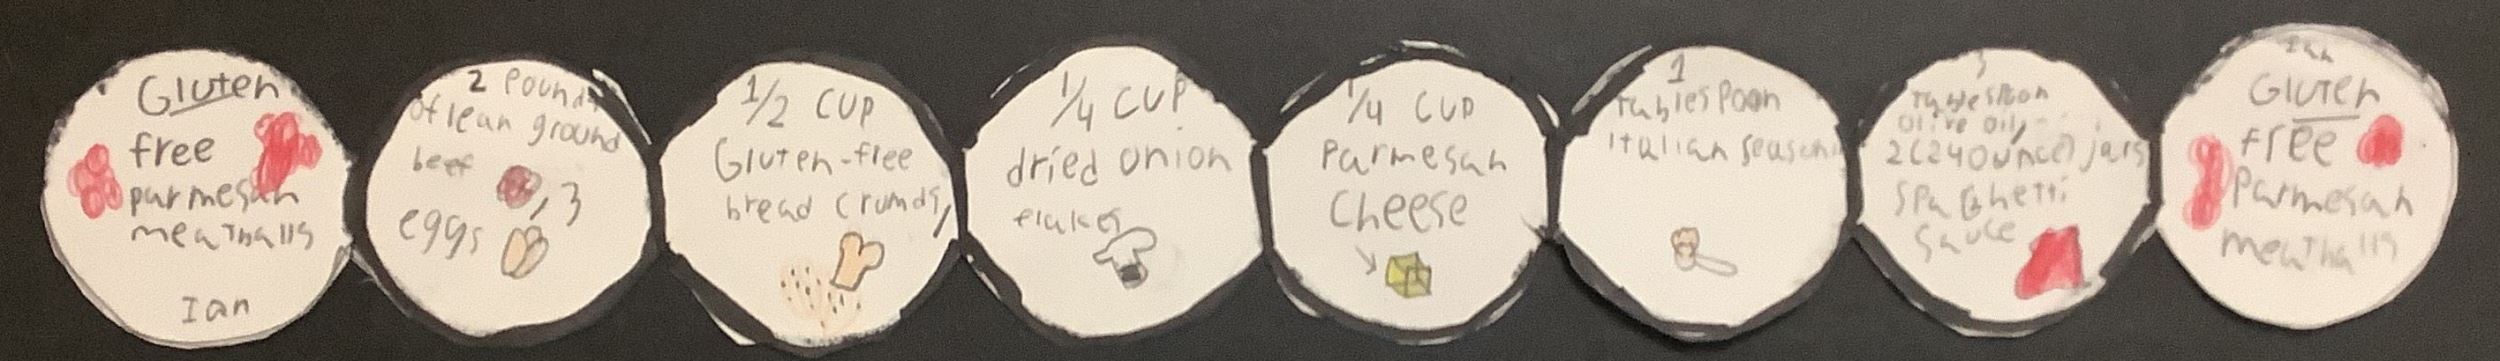 Gluten
free
parmesan
meatballs
Ian
2 Pounds
of lean ground
beef
, 3
eggs
1/2 CUP
Gluten-free
bread crumds,
1/4 CUP
dried onion
flakes
1/4 CUP
Parmesan
Cheese
1
tablespoon
Italian season
3
tablespoon
olive oil,
2(24Ounce) jars
SPaGhetti
Sauce
Ian
Gluten
free
Parmesan
meatballs